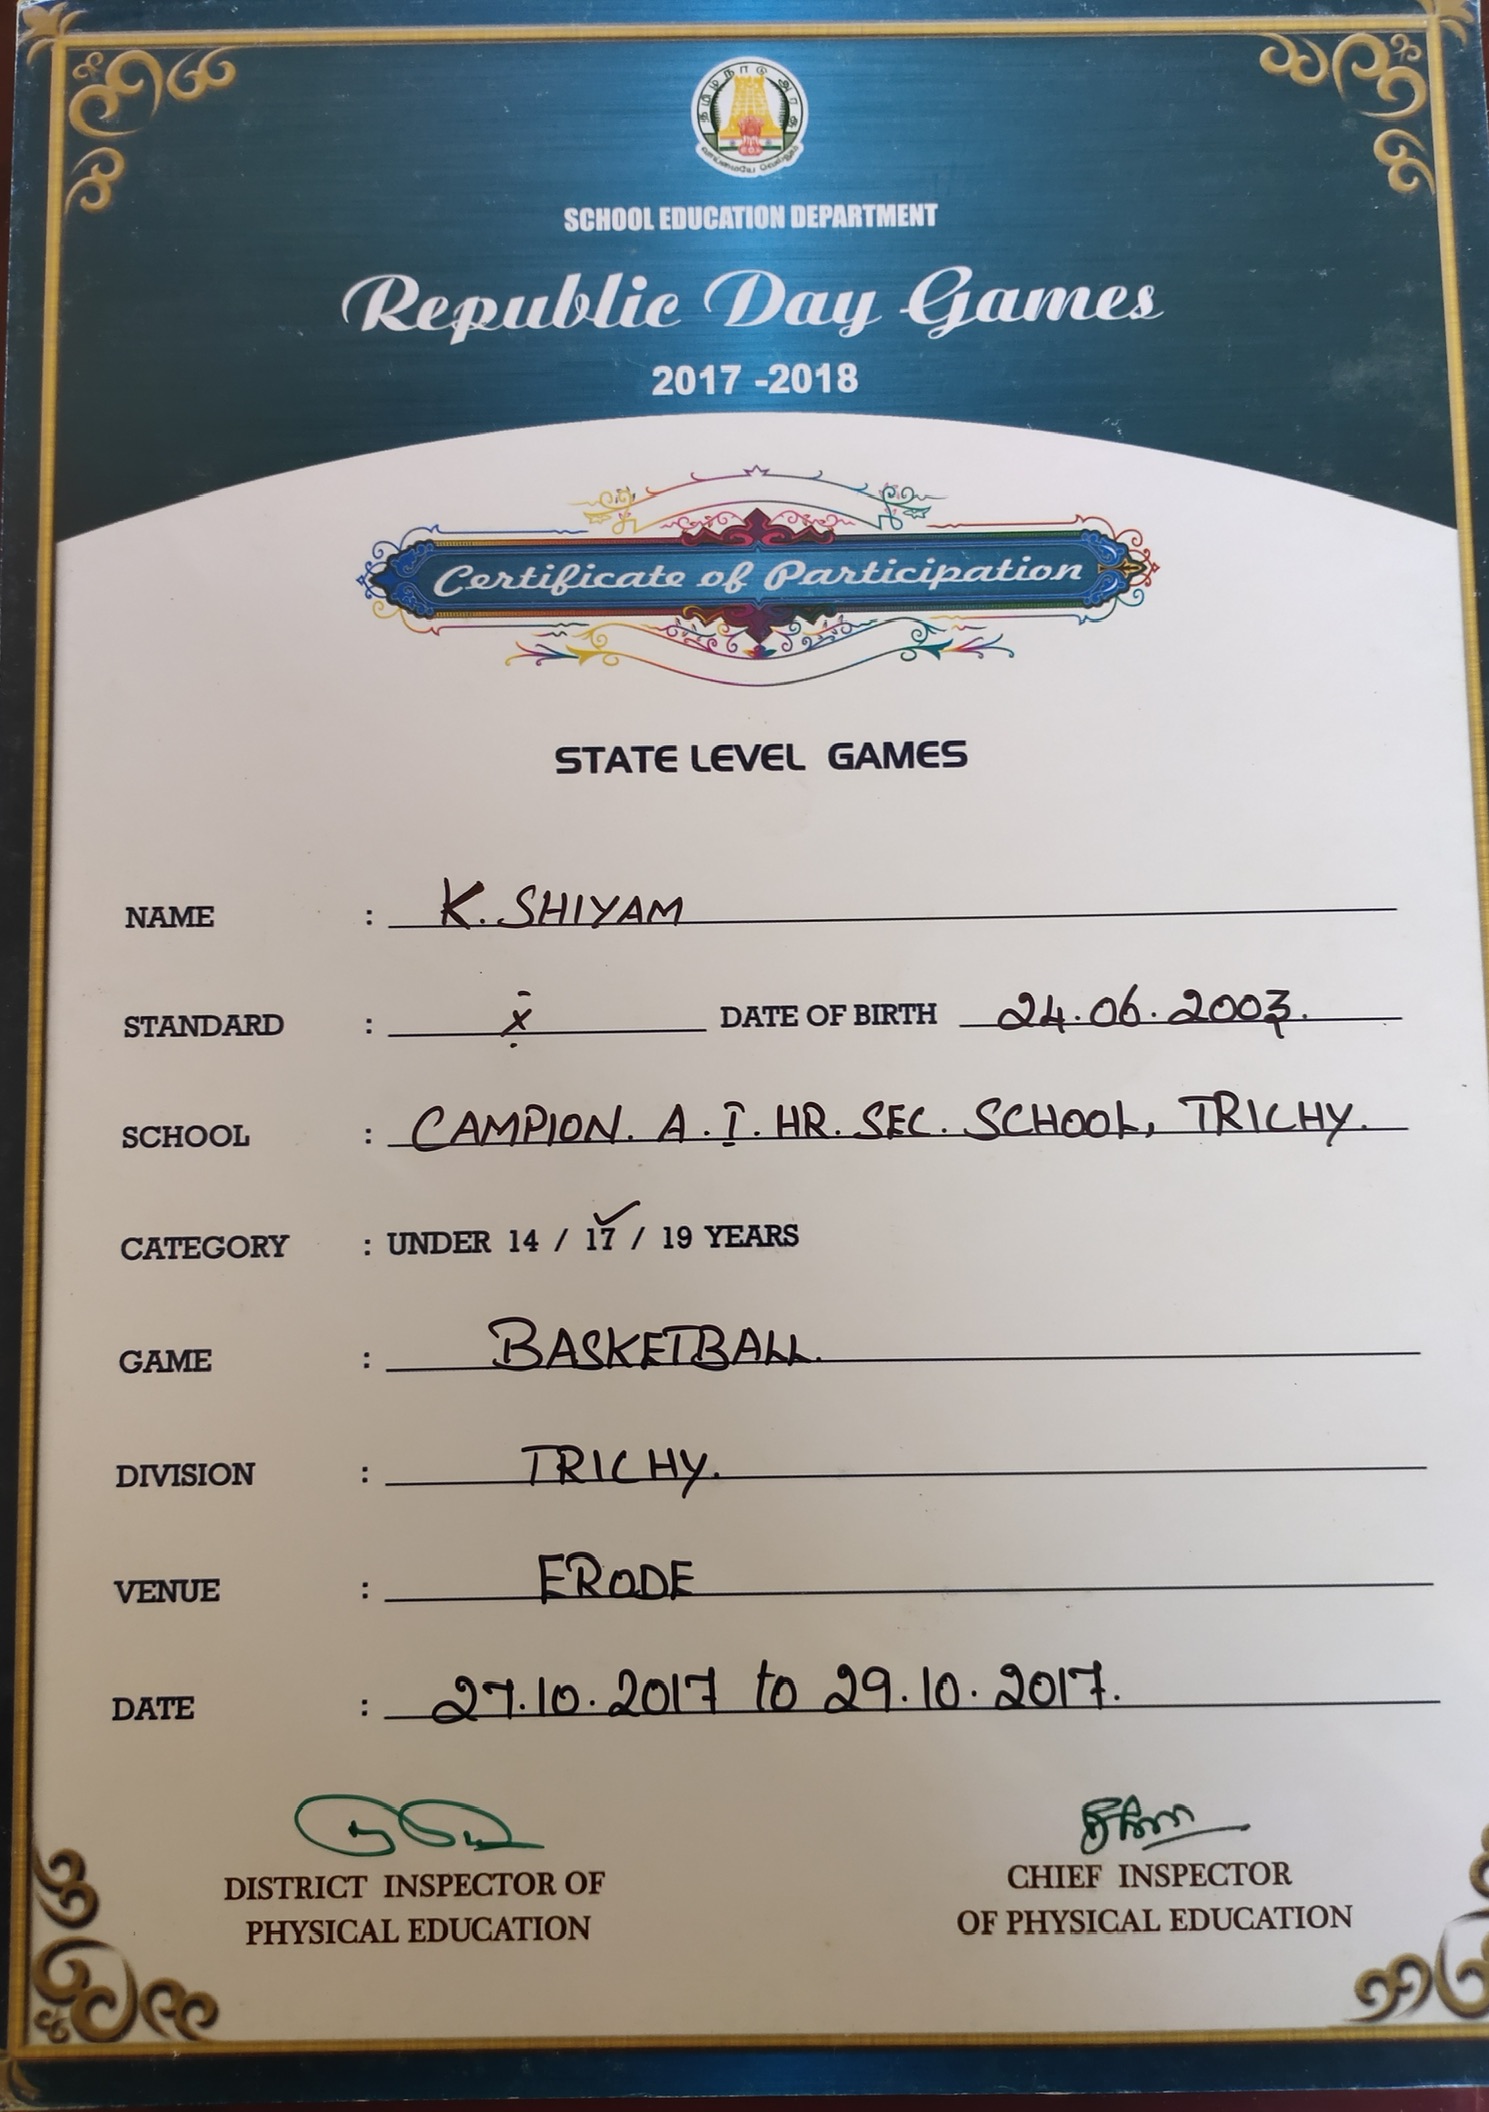 தமிழ்நாடு அரசு
வாய்மையே வெல்லும்
SCHOOL EDUCATION DEPARTMENT
Republic Day Games
2017 -2018
Certificate of Participation
STATE LEVEL GAMES
NAME : K. SHIYAM
STANDARD : X DATE OF BIRTH 24.06.2003.
SCHOOL : CAMPION. A. I. HR. SEC. SCHOOL, TRICHY.
CATEGORY : UNDER 14 / 17 / 19 YEARS
GAME : BASKETBALL.
DIVISION : TRICHY.
VENUE : ERODE
DATE : 27.10.2017 to 29.10.2017.
DISTRICT INSPECTOR OF PHYSICAL EDUCATION
CHIEF INSPECTOR OF PHYSICAL EDUCATION